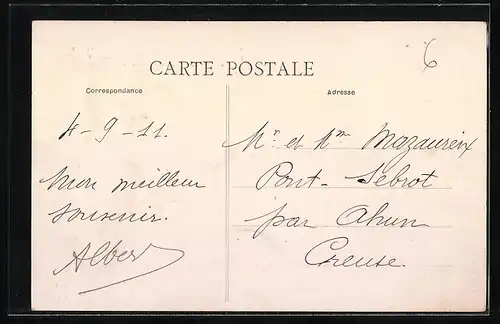 6
CARTE POSTALE
Correspondance
Adresse
4-9-11.
Mon meilleur
souvenir.
Albert
Mr et Mme Mazaureix
Pont-Sebrot
par Ahun
Creuse.